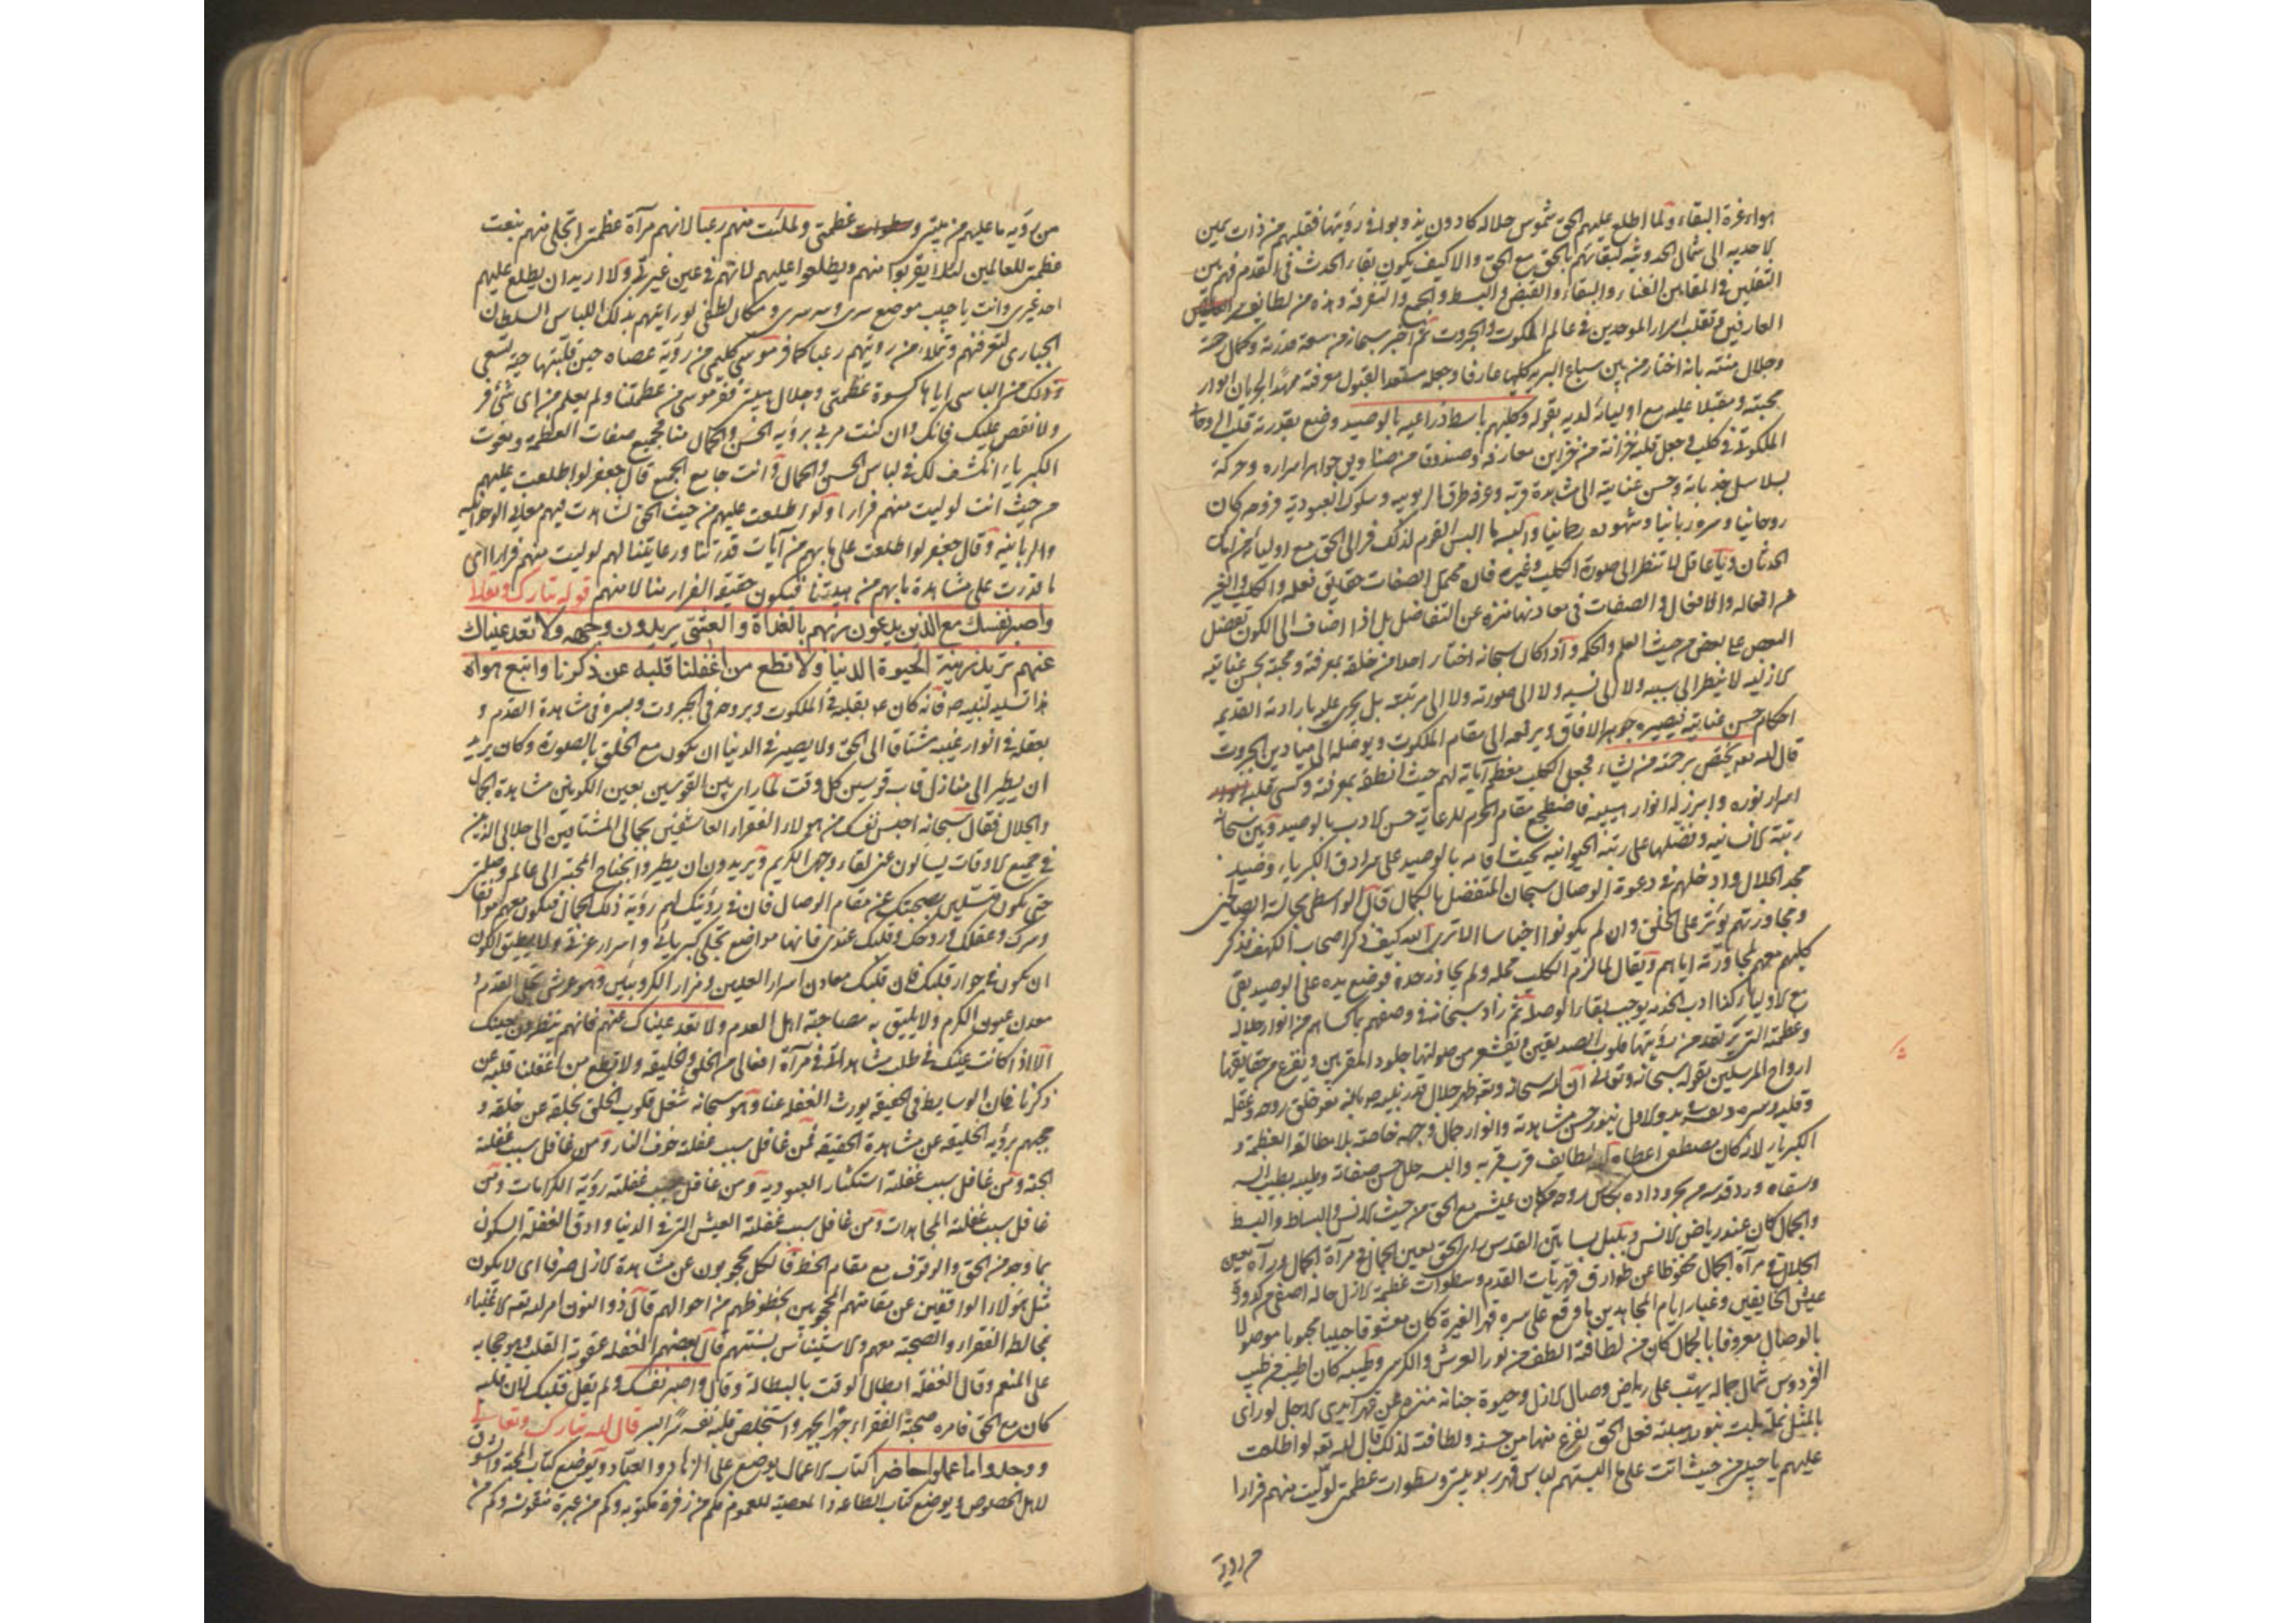 هواء غرة البقاء ولما اطلع عليهم الحق شموس جلاله كادون يذوبوا في رؤيتها فقلبهم من ذات يمين
لاحديه الى شمال الحدوثيه لبقائهم بالحق مع الحق والا كيف يكون بقاء الحدث في القدم فهم بين
التقلبين في المقامين الفناء والبقاء والقبض والبسط والجمع والتفرقة وهذه من لطائف
العارفين وتقلب اسرار الموحدين في عالم الملكوت والجبروت ثم اخبر سبحانه من سعة قدرته وكمال
وجلال منته بانه اختار من بين سباع البرية كلبا عارفا وجعله مستعدا لقبول معرفته
محبته ومقبلا عليه مع اوليائه لديه بقوله وكلبهم باسط ذراعيه بالوصيد وضع بقدرته قلب
الملكوتى في كلب وجعل قلبه خزانة من خزاين معارفه وصندوقا من صناديق جواهر اسراره وحركه
بسلاسل جذباته وحسن عنايته الى مشاهدة قربه وعرفه طرق الربوبيه وسلوك العبودية فروحه كان
روحانيا وسره ربانيا وشهوده رحمانيا والبسها البس القوم لذلك فر الى الحق مع اوليائه
الحدثان ويا عاقل لا تنظر الى صورة الكلب وغيره فان محمل الصفات حقايق فعله والكلب والغير
من افعاله والافعال والصفات في معادنها منزه عن التفاضل بل اذا اضاف الى الكون تفضل
البعض على بعض من حيث العلم والحكم واذا كان سبحانه اختار احدا من خلقه بمعرفته ومحبته بحسن عنايته
لازليه لا ينظر الى سببه ولا الى نسبه ولا الى صورته ولا الى مرتبته بل يجرى عليه بارادته القديمة
احكام حسن عنايته فيصيره جوهر الافاق ويرفعه الى مقام الملكوت ويوصله الى ميادين الجبروت
قال الله تعه يختص برحمته من يشاء فجعل الكلب معظم آياته لهم حيث انطقه بمعرفته وكسى قلبه
اسرار نوره وابرز له انوار هيبته فاضطجع مقام الحرم للرعاية حسن لادب بالوصيد وبين سبحانه
رتبة لانسانيه وفضلها على رتبة الحيوانيه بحيث اقامه بالوصيد على سرادق الكبرياء وفنيد
مجد الجلال وادخلهم في دعوة الوصال سبحان المتفضل بالكمال قال الواسطى مجالسة الصالحين
ومجاورتهم يؤثر على الخلق وان لم يكونوا اجناسا الا ترى الله كيف ذكر اصحاب الكهف فذكر
كلبهم معهم لمجاورته اياهم ويقال لما لزم الكلب محله ولم يجاوز حده فوضع يده على الوصيد بقى
مع لاولياء كذا ادب الخدمه يوجب بقاء الوصله ثم زاد سبحانه في وصفهم بما كساهم من انوار جلاله
وعظمته التي يرتعد من رؤيتها قلوب الصديقين ويقشعر من صولتها جلود المقربين ويفزع من حقايقها
ارواح المرسلين بقوله سبحانه وتعالى ان الله سبحانه وتعه خلق روحه وعقله
وقلبه وسره في بدو لاول بنور حسن مشاهدته وانوار جمال وجهه خاصته بلا مطالعة العظمة و
الكبرياء لانه كان مصطفى اعطاه لطايف قرب قربه والبسه حلل حسن صفاته وطيبه بطيب
وسقاه ورد قدسه من بحر وداده بكاس روحه فكان عيشه مع الحق من حيث لانس والبساط والبسط
والجمال كان عند رياض لانس وبلبل بساتين القدس راى الحق بعين الجمال في مرآة الجمال ورآه بعين
الجلال في مرآة الجمال محفوظا عن طوارق قهريات القدم وسطوات عظمة لازل حاله اصفى من كدورة
عيش الخايفين وغبار ايام المجاهدين ما وقع على سره قهر الغيرة كان معشوقا حبيبا محبوبا موصولا
بالوصال معروفا بالجمال كان من لطافة الطف من نور العرش والكرسى وطيبه كان اطيب من طيب
الفردوس شمال جماله يهب على رياض وصال لازل وحيوة جنانه منزه عن قهر ايدى لاجل لو راى
بالمثل نملة لبست نور هيبته فجعل الحق يفزع منها من حسنه ولطافته لذلك قال الله تعه لو اطلعت
عليهم يا حبيبى من حيث انت على ما البستهم لباس قهر ربوبيتى وسطوات عظمتى لوليت منهم فرارا
من روية
من رؤيه ما عليهم من هيبتى و عظمتى ولملئت منهم رعبا لانهم مرآة عظمتى اتجلى منهم بنعت
عظمتى للعالمين لئلا يقربوا منهم ويطلعوا عليهم لانهم في عين غيرتى ولا اريد ان يطلع عليهم
احد غيرى وانت يا حبيب موضع سرى وسر سرى ومكان لطفى لو رايتهم بذلك اللباس السلطان
الجبارى لتعرفنهم وتملاء من رويتهم رعبا كما فر موسى كليمى من رؤية عصاه حين قلبتها حية تسعى
وذلك من الباسى اياها كسوة عظمتى وجلال هيبتى ففر موسى من عظمتنا ولم يعلم من اى شئ فر
ولا نقص عليك فانك وان كنت مربى برؤيه الحسن والجمال منا مجمع صفات العظمة ونعوت
الكبرياء انكشف لك في لباس الحسن والجمال وانت جامع الجمع قال جعفر لو اطلعت عليهم
من حيث انت لوليت منهم فرارا ولو اطلعت عليهم من حيث الحق لشاهدت فيهم معانى الوحدانيه
والربانيه وقال جعفر لو اطلعت على ما بهم من آيات قدرتنا ورعايتنا لهم لوليت منهم فرارا اى
ما قدرت على مشاهدة ما بهم من هيبتنا فيكون حقيقه الفرار منا لا منهم قوله تبارك وتعالى
واصبر نفسك مع الذين يدعون ربهم بالغداة والعشى يريدون وجهه ولا تعد عيناك
عنهم تريد زينة الحيوة الدنيا ولا تطع من اغفلنا قلبه عن ذكرنا واتبع هواه
هذا تسلية لنبيه ص فانه كان عم بقلبه في الملكوت وبروحه في الجبروت وبسره في مشاهدة القدم و
بعقله في انوار غيبه مشتاقا الى الحق ولا يصبر في الدنيا ان يكون مع الخلق بالصورة وكان يريد
ان يطير الى منازل قاب قوسين كل وقت لما راى بين القوسين بعين الكونين مشاهدة الجمال
والجلال فقال سبحانه احبس نفسك مع هولاء الفقراء العاشقين بجمالى المشتاقين الى جلالى الذين
في جميع لاوقات يسالون عنى لقاء وجهى الكريم ويريدون ان يطيروا بجناح المحبة الى عالم وصلتى
حتى يكون متسلين بصحبتك عن مقام الوصال فان في رؤيتك لهم رؤية ذلك الجمال فيكون معهم موافقا
وسرك وعقلك وروحك وقلبك عندى فانها مواضع تجلى كبريائى واسرار عزتى ولا يطيق الكون
ان يكون في جوار قلبك فان قلبك معادن اسرار العليين ومزار الكروبيين وهو عرش تجلى القدم و
معدن عيون الكرم ولا يليق به مصاحبة اهل العدم ولا تعد عيناك عنهم فانهم ينظرون بعينك
الا اذا كانت عينك في طلب مشاهدتى في مرآة افعالى من الخلق والخليقه ولا تطع من اغفلنا قلبه عن
ذكرنا فان الوسايط في الحقيقه يورث الغفله عنا وهو سبحانه شغل قلوب الخلق بخلقه عن خلقه و
حجبهم برؤيه الخليقه عن مشاهدة الحقيقه فمن غافل سبب غفلته خوف النار ومن غافل سبب غفلته
الجنة ومن غافل سبب غفلته استكثار العبوديه ومن غافل سبب غفلته رؤية الكرامات ومن
غافل سبب غفلته المجاهدات ومن غافل سبب غفلته العيش التى في الدنيا وادق الغفلة السكون
بما وجد من الحق والوقوف مع مقام الحظ فالكل محجوبون عن مشاهدة لازل صرفا اى لا يكون
مثل هولاء الواقفين عن مقامتهم المحجوبين بحظوظهم من احوالهم قال ذو النون امر الله تعه لاغنياء
بمخالطة الفقراء والصحبة معهم ولاستيناس بسنتهم قال بعضهم الغفله عقوبة القلب وهو حجابه
على المنعم وقال الغفلة ابطال الوقت بالبطالة وقال واصبر نفسك ولم يقل قلبك لان قلبه
كان مع الحق فامره صحبة الفقراء جهرا بجهر واستخلص قلبه نفسه سرا بسر قال الله تبارك وتعالى
ووجدوا ما عملوا حاضرا كتاب لاعمال يوضع على الزهاد والعباد ويوضع كتاب المحبة والشوق
لاهل الخصوص ويوضع كتاب الطاعه والمعصية للعموم فكم من زفرة مكتوبه وكم من عبرة منقوشه وكم من